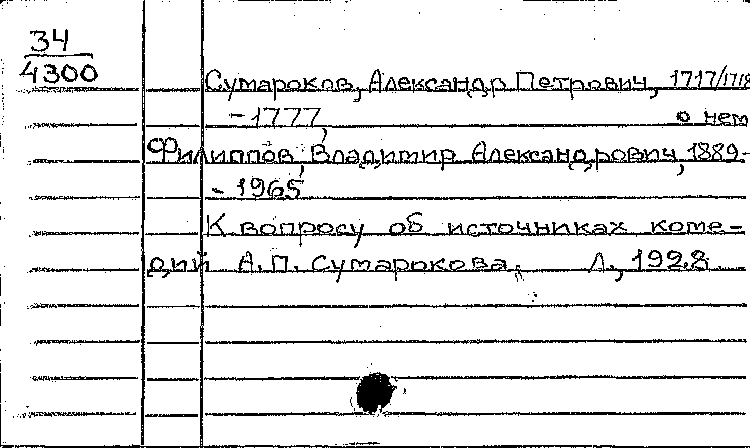 34
4300
Сумароков, Александр Петрович, 1717/1718
-1777, о нем
Филиппов, Владимир Александрович, 1889-
- 1965
К вопросу об источниках коме-
дий А.П. Сумарокова. Л., 1928